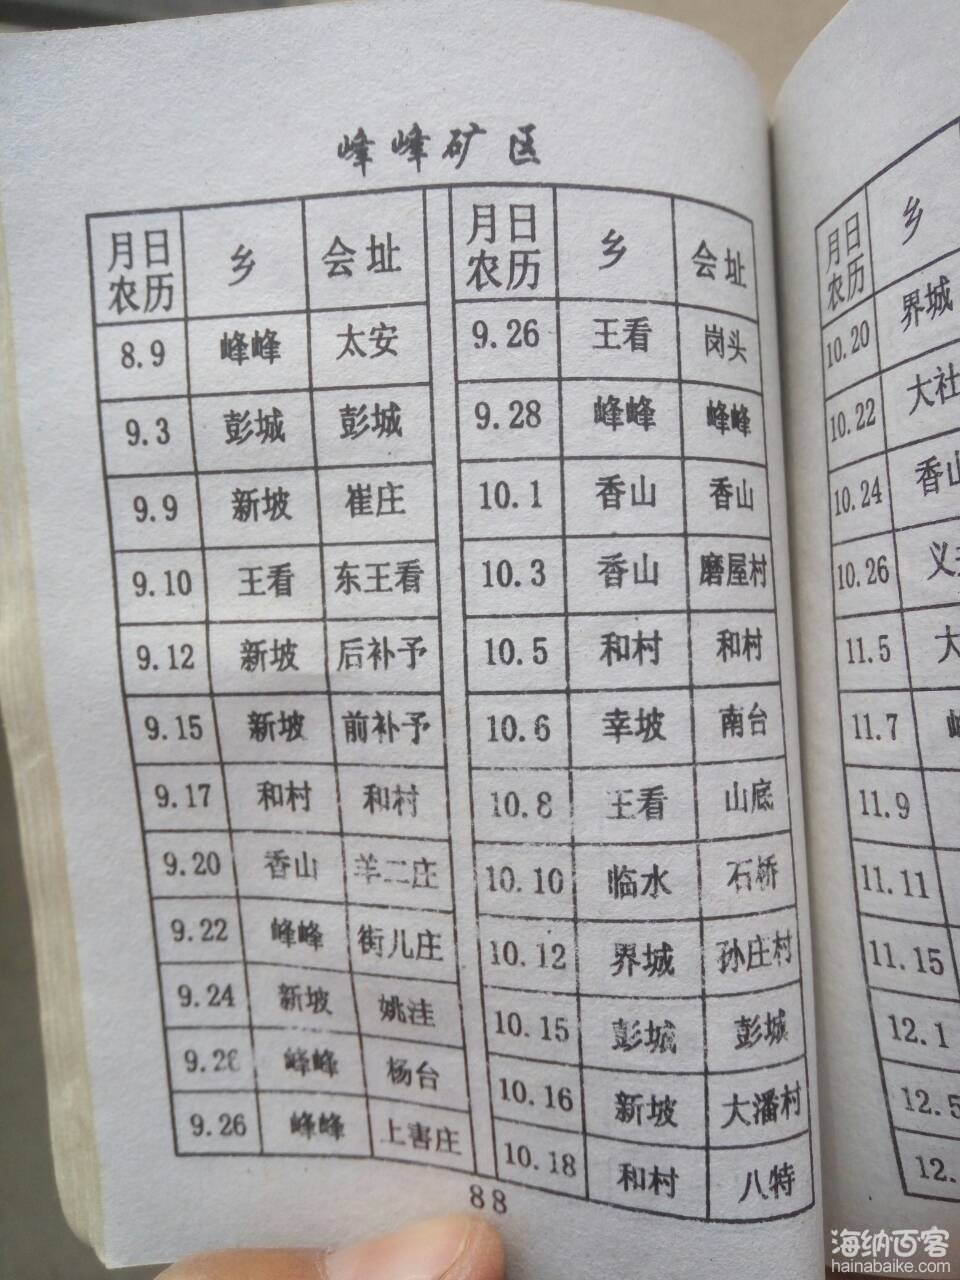 峰峰矿区
月日 乡 会址
农历
8.9 峰峰 太安
9.3 彭城 彭城
9.9 新坡 崔庄
9.10 王看 东王看
9.12 新坡 后补予
9.15 新坡 前补予
9.17 和村 和村
9.20 香山 羊二庄
9.22 峰峰 街儿庄
9.24 新坡 姚洼
峰峰 杨台
9.26 峰峰 上害庄
月日 乡 会址
农历
9.26 王看 岗头
9.28 峰峰 峰峰
10.1 香山 香山
10.3 香山 磨屋村
10.5 和村 和村
10.6 幸坡 南台
10.8 王看 山底
10.10 临水 石桥
10.12 界城 孙庄村
10.15 彭城 彭城
10.16 新坡 大潘村
10.18 和村 八特
88
月日 乡
农历
10.20 界城
10.22 大社
10.24 香山
10.26 义
11.5 大
11.7
11.9
11.11
11.15
12.1
12.5
12.
海纳百客
hainabaike.com